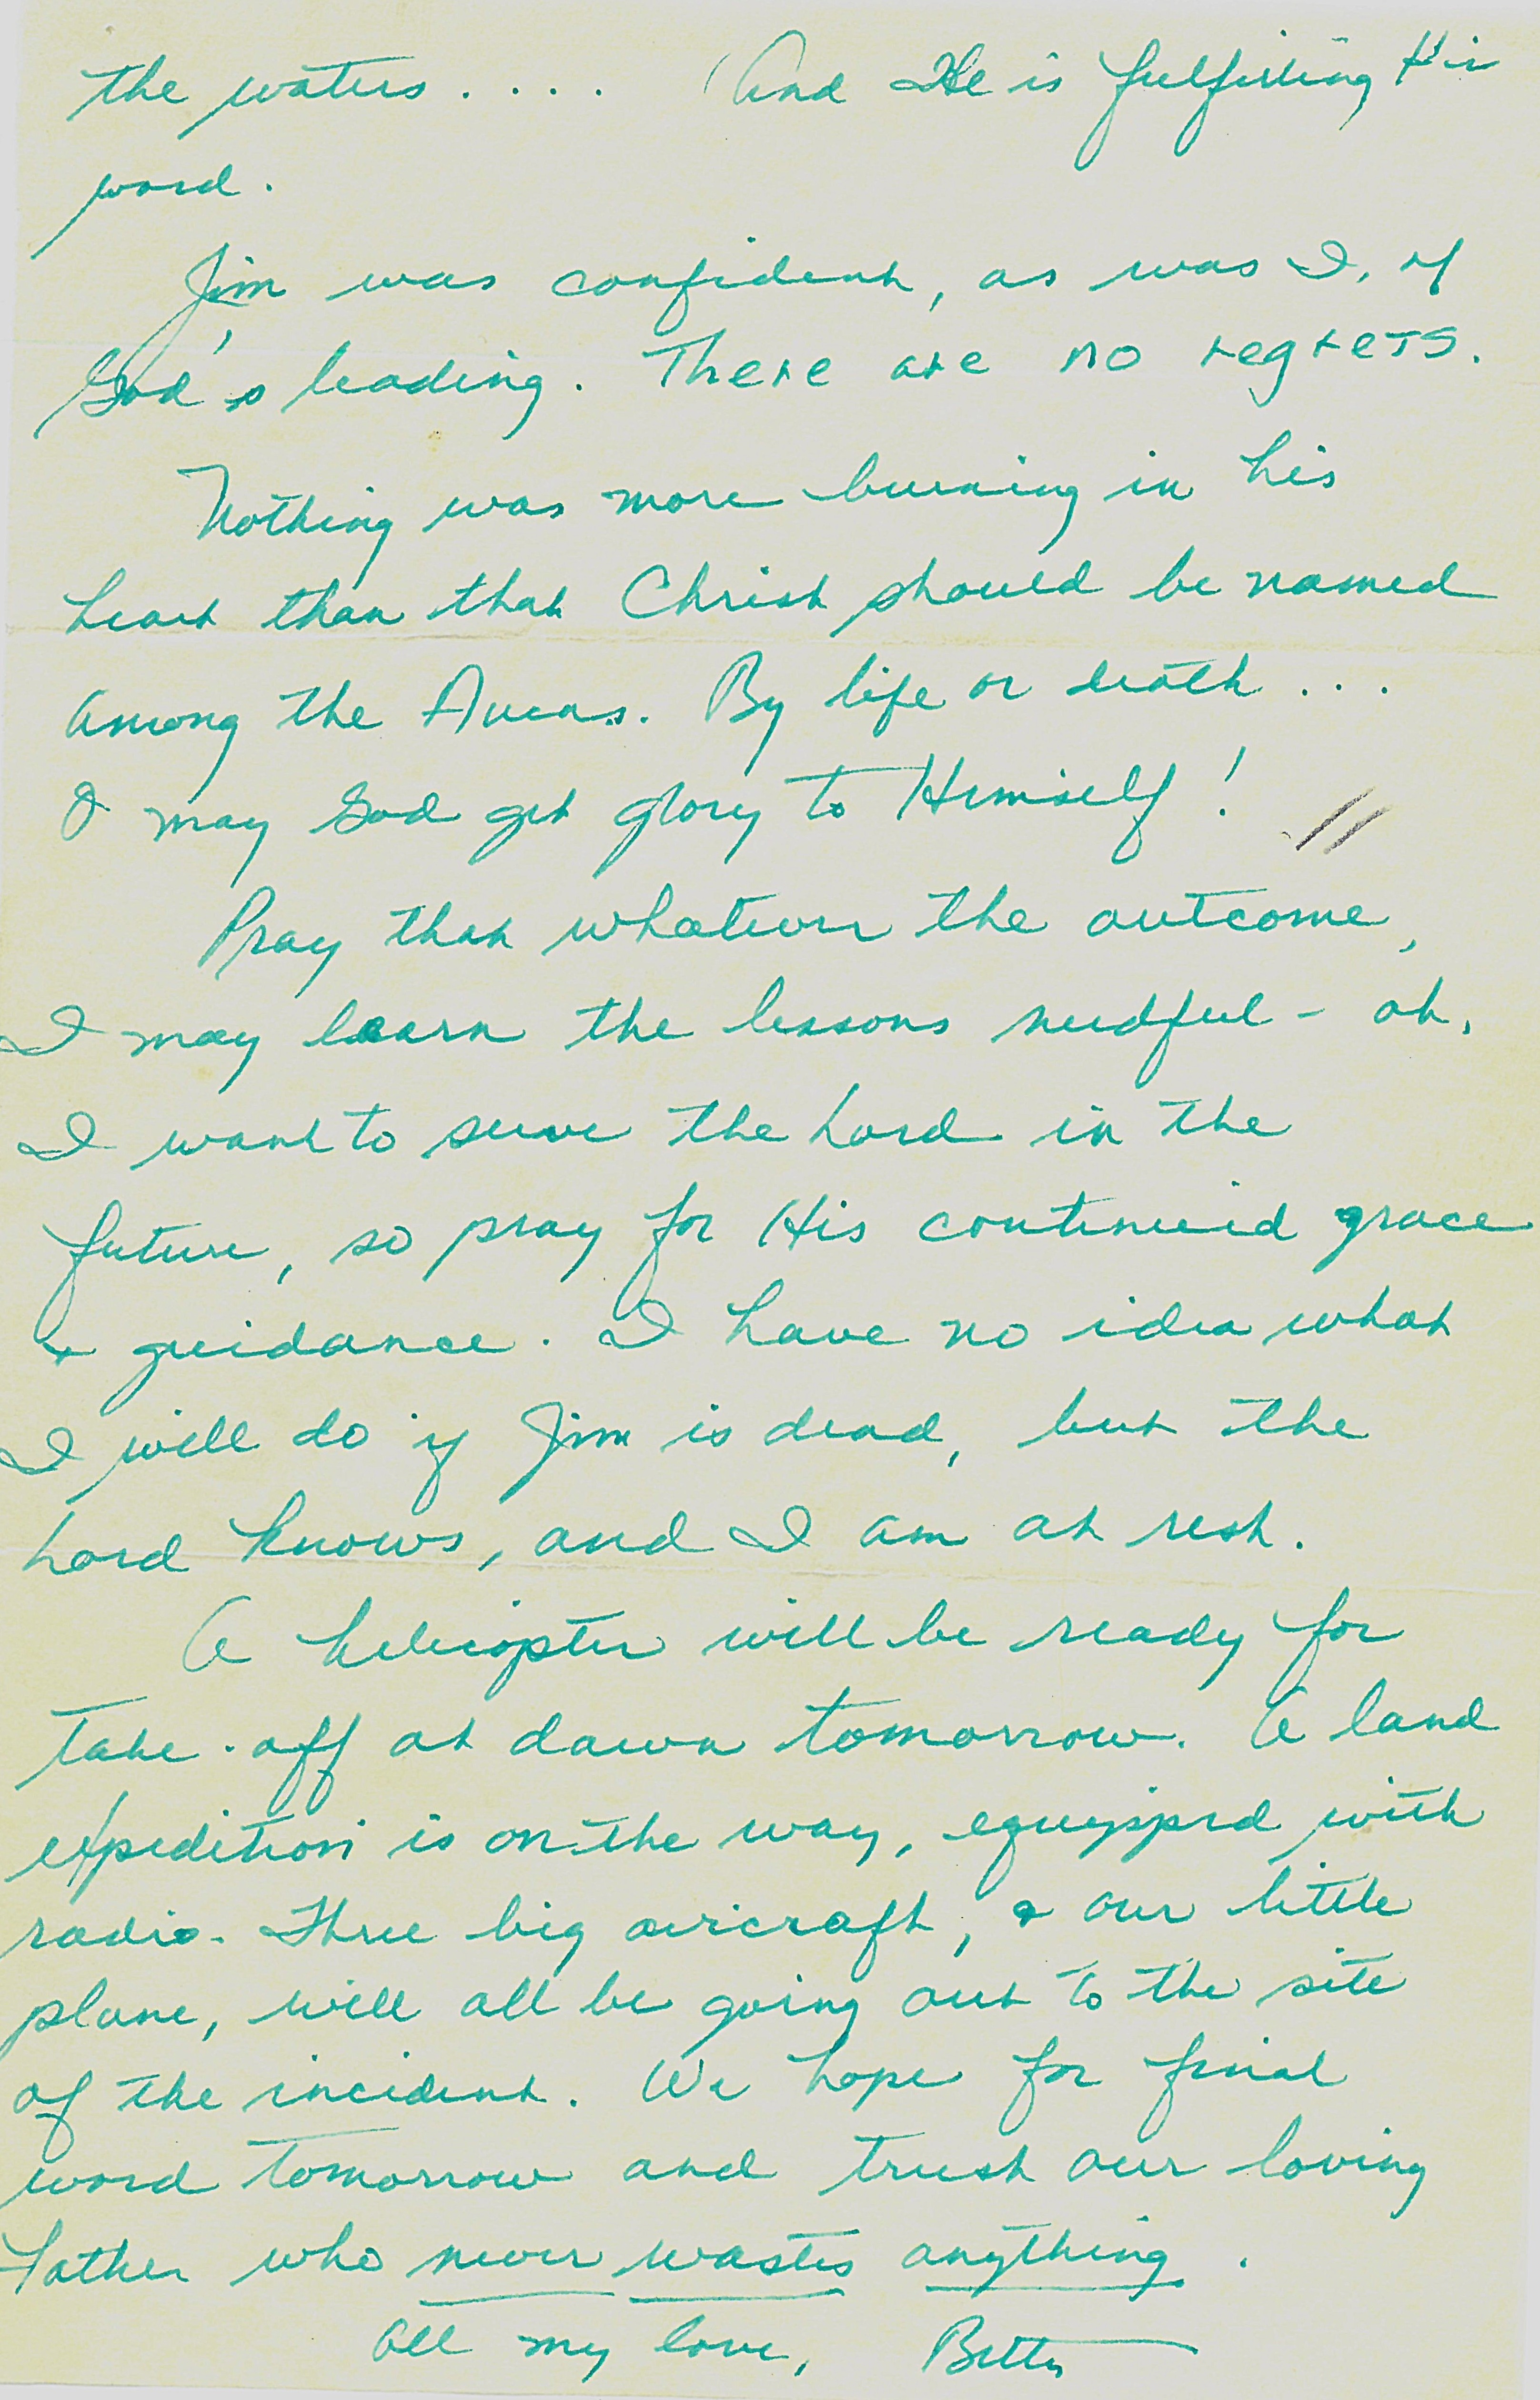 the waters.... And He is fulfilling His
word.
Jim was confident, as was I, of
God's leading. There are no regrets.
Nothing was more burning in his
heart than that Christ should be named
among the Aucas. By life or death...
O may God get glory to Himself!
Pray that whatever the outcome,
I may learn the lessons needful - oh,
I want to serve the Lord in the
future, so pray for His continued grace
+ guidance. I have no idea what
I will do if Jim is dead, but the
Lord knows, and I am at rest.
A helicopter will be ready for
take-off at dawn tomorrow. A land
expedition is on the way, equipped with
radio. Three big aircraft, & our little
plane, will all be going out to the site
of the incident. We hope for final
word tomorrow and trust our loving
Father who never wastes anything.
All my love, Betty